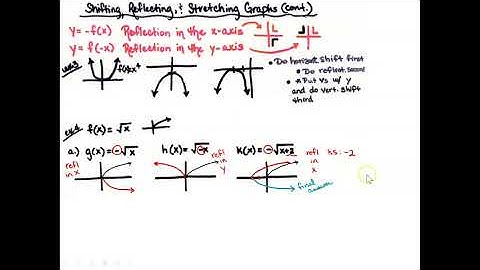 Shifting, Reflecting, & Stretching Graphs (cont.)
y = -f(x) Reflection in the x-axis
y = f(-x) Reflection in the y-axis
f(x)=x⁴
• Do horizont. shift first
• Do reflect. second
• * Put vs w/ y
and do vert. shift
third
f(x) = √x
a.) g(x) = -√x
h(x) = √-x
k(x) = -√x+2
refl
in x
refl
in
y
refl
in
x
hs: -2
final
answer